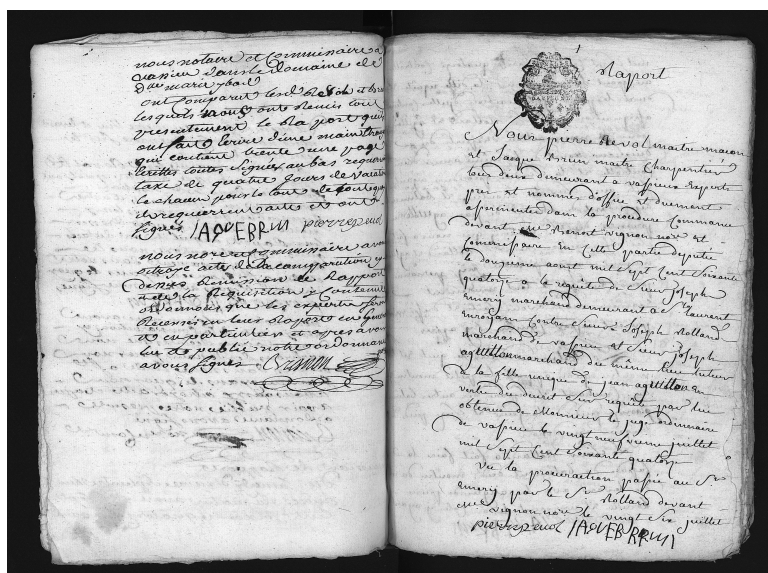 nous notaire et Commissaire a
vassieu dans le domaine de
D.lle marie
ont Comparut
lesquels nous ont Remis tout
presentement le Raport quils
ont fait Ecrire d'une main
qui contient trente une page
Ecrittes toutes Signées au bas
taxe de quatre Jours de
le chacun pour le tout
requerreur acte et ont
signes JAQUEBRUN pierre revol
nous no.re commissaire avons
octroye acte de la comparution
Remission de Rapport
et de la Requisition y contenue
ordonnons que les expertz seront
Recensés en leur Raport
et en particulier et apres avoir
lue et publie notre ordonnance
avons signes Vignon
1
Raport
Nous pierre Revol maitre macon
et Jacque Brun maitre Charpentier
tous deux demeurant a vassieux Experts
pris et nommes d'office et duement
asermentes dans la procedure Commancé
devant me Benoit vignon no.re et
Commissaire En Cette partie deputé
le douzieme aoust mil sept Cent soixante
quatorze a la requete de sieur Joseph
Emery marchand demeurant a St laurent
En royans Contre sieurs Joseph Rolland
marchand de vassieux et sieur Joseph
aguillon marchand du même lieu tuteur
a la fille unique de jean aguillon En
vertu du decret sur requête par lui
obtenue de Monsieur le juge ordinaire
de vassieu le vingt neufvieme juillet
mil sept Cent soixante quatorze
Vu la procuration passée au Sr
Emery par le Sr Rolland devant
me vignon no.re le vingt six juillet
pierre revol JAQUEBRRUN